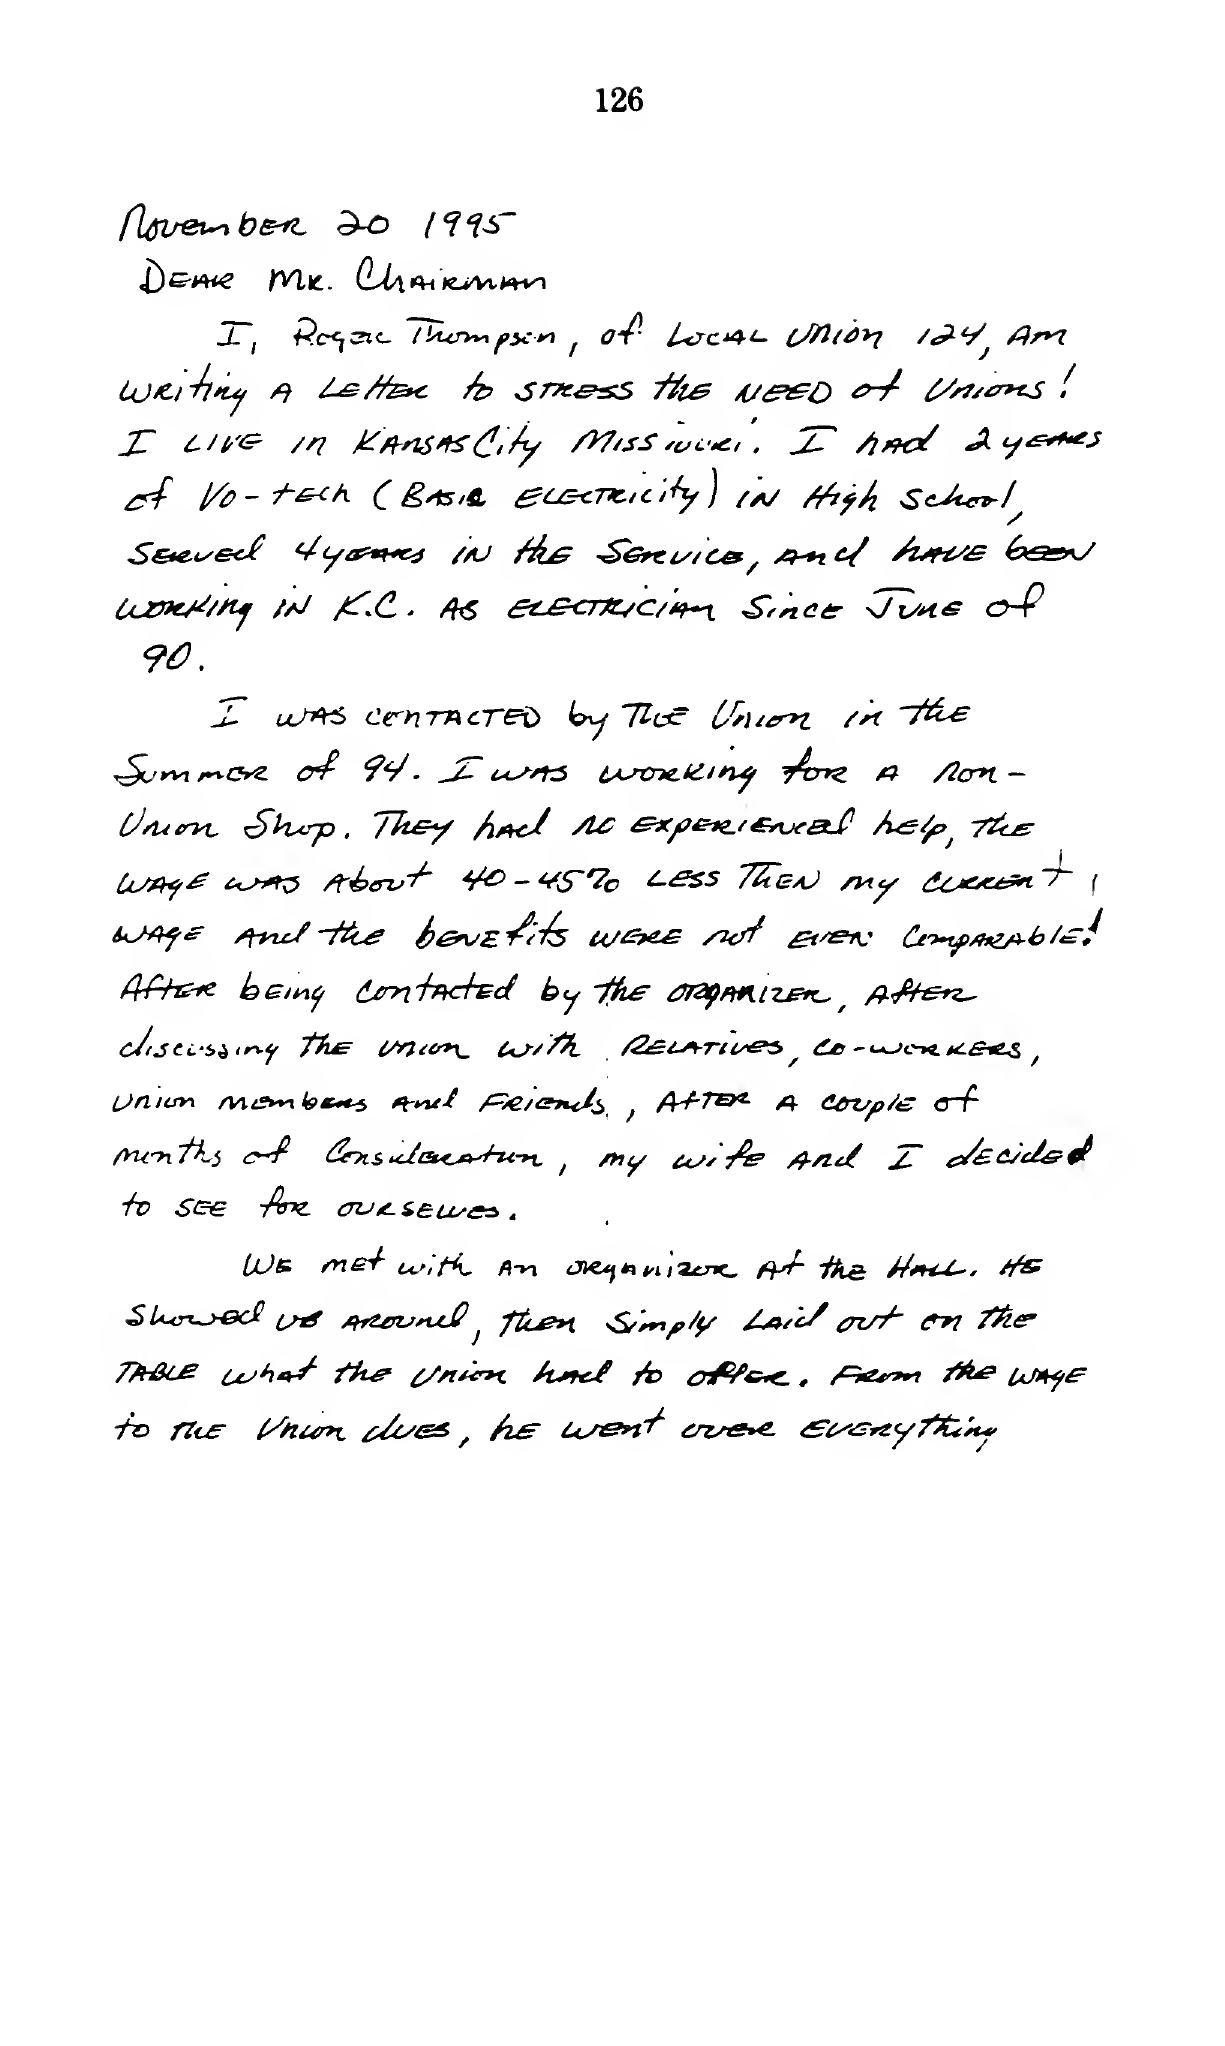 126
November 20 1995
Dear Mr. Chairman
I, Roger Thompson, of Local Union 124, am
writing a letter to stress the NEED of Unions!
I live in Kansas City Missouri. I had 2 years
of Vo-tech (Basic Electricity) in High School,
served 4 years in the Service, and have been
working in K.C. as electrician since June of
90.
I was contacted by the Union in the
Summer of 94. I was working for a non-
Union Shop. They had no experienced help, the
wage was about 40-45% less then my current
wage and the benefits were not even comparable!
After being contacted by the organizer, after
discussing the union with relatives, co-workers,
union members and friends, after a couple of
months of consideration, my wife and I decided
to see for ourselves.
We met with an organizor at the Hall. He
showed us around, then simply laid out on the
table what the Union had to offer. From the wage
to the Union dues, he went over everything